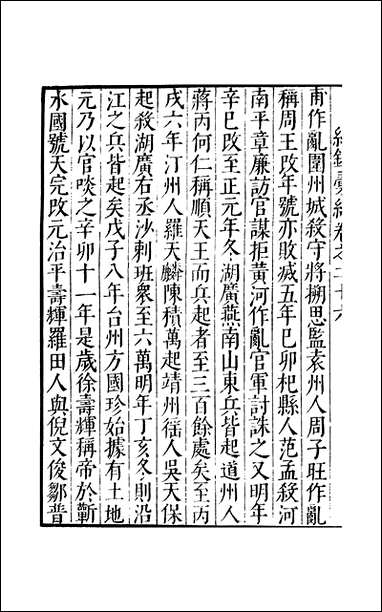 紀錄彙編卷之二十六
甫作亂圍州城殺守將搠思監袁州人周子旺作亂
稱周王改年號亦敗滅五年己卯杞縣人范孟殺河
南平章廉訪官謀拒黃河作亂官軍討誅之又明年
辛巳改至正元年冬湖廣燕南山東兵皆起道州人
蔣丙何仁稱順天王而兵起者至三百餘處矣至丙
戌六年汀州人羅天麟陳積萬起靖州徭人吳天保
起殺湖廣右丞沙剌班衆至六萬明年丁亥冬則沿
江之兵皆起矣戊子八年台州方國珍始據有土地
元乃以官啖之辛卯十一年是歲徐壽輝稱帝於蘄
水國號天完改元治平壽輝羅田人與倪文俊鄒普